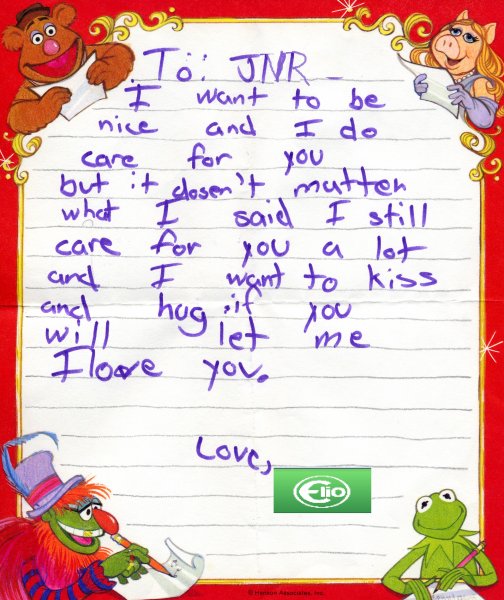 To: JNR
I want to be
nice and I do
care for you
but it dosen't mutter
what I said I still
care for you a lot
and I want to kiss
and hug, if you
will let me
I loove you.
Love,
Elio
© Henson Associates, Inc.